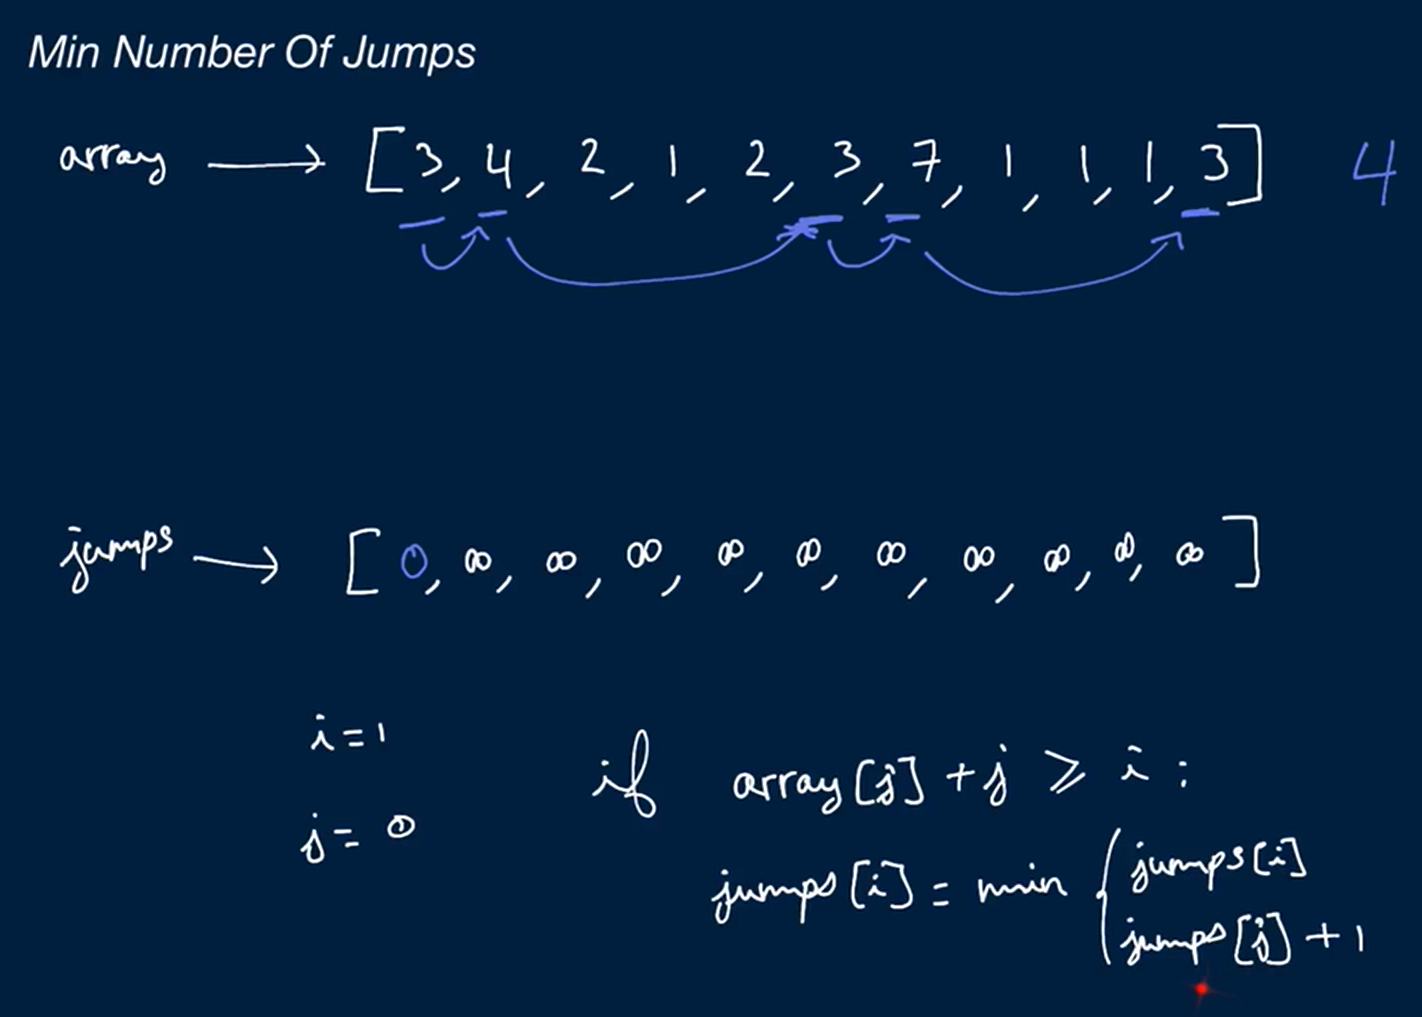 Min Number Of Jumps
array → [3, 4, 2, 1, 2, 3, 7, 1, 1, 1, 3] 4
jumps → [0, ∞, ∞, ∞, ∞, ∞, ∞, ∞, ∞, ∞, ∞]
i = 1
if array[j] + j ≥ i :
j = 0
jumps[i] = min { jumps[i]
jumps[j] + 1